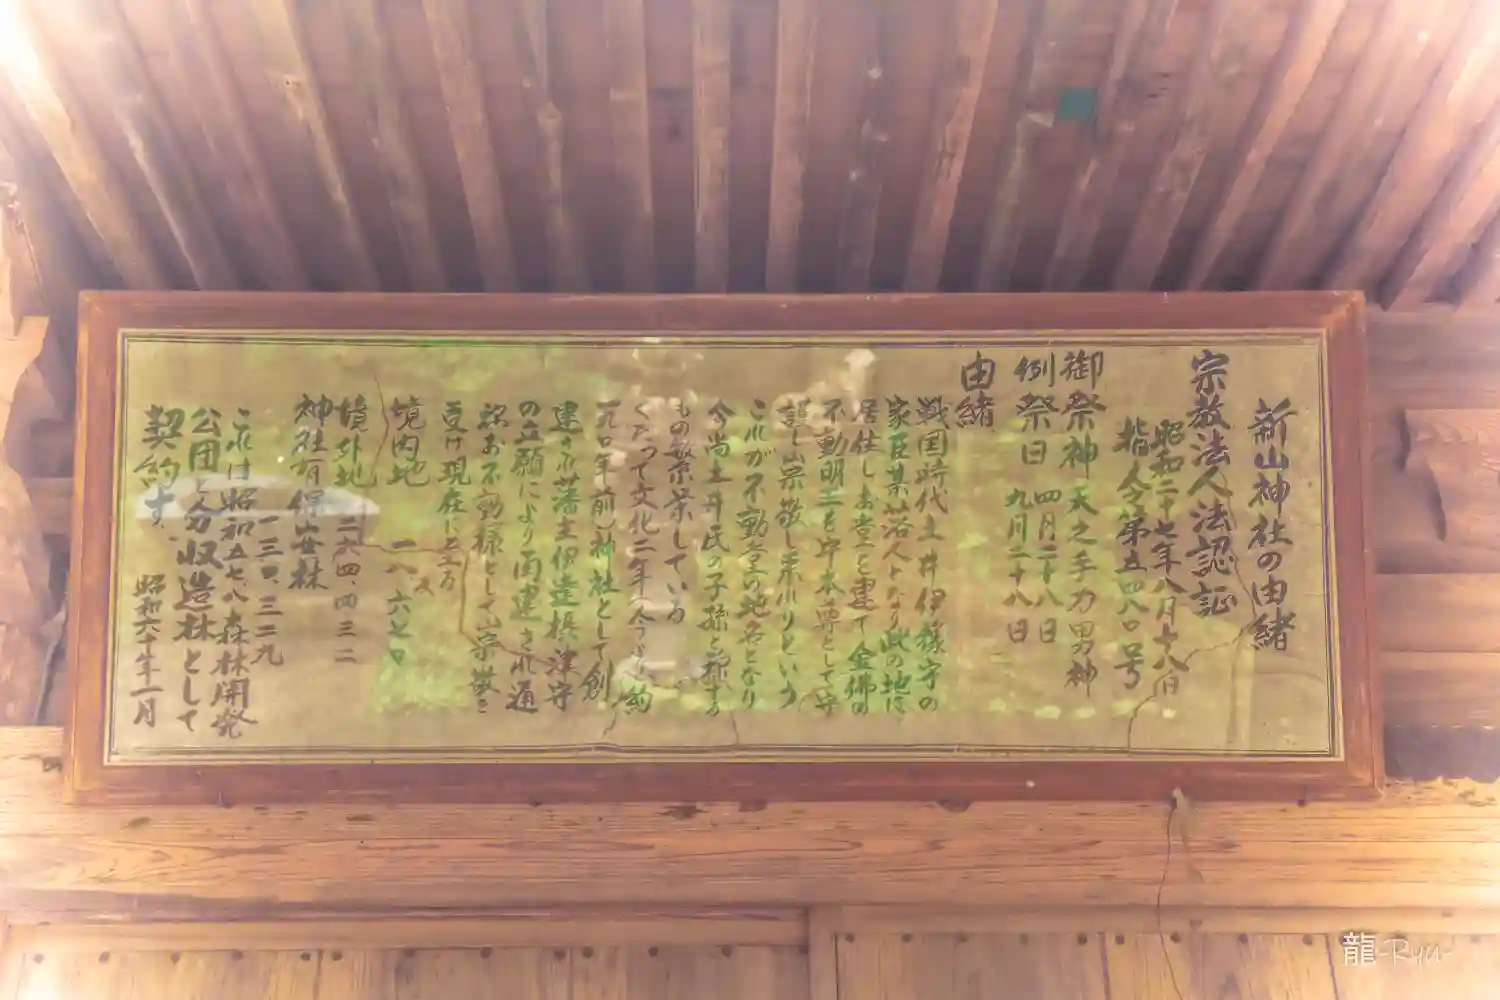 新山神社の由緒
宗教法人法認証
昭和二十七年八月十八日
指令第五四八〇号
御祭神 天之手力男神
例祭日 四月二十八日
九月二十八日
由緒
戦国時代土井伊豫守の
家臣某落人となり此の地に
居住しお堂を建て金佛の
不動明王を守本尊として守
護し崇敬し来れりという
これが不動堂の地名となり
今尚土井氏の子孫と称する
もの繁栄している
くだって文化二年(今より約
一九〇年前)神社として創
建され藩主伊達摂津守
の立願により再建され通
称お不動様として崇敬を
受け現在に至る
境内地 一八、六七日
境外地 二六四、四三二
一三〇、三二九
神社有保安林
これは昭和五七、八森林開発
公団と分収造林として
契約す、
昭和六十年一月
龍-Ryu-